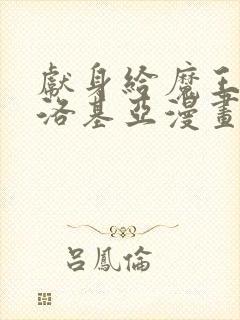 獻身給魔王
洛基亞漫畫
呂鳳倫